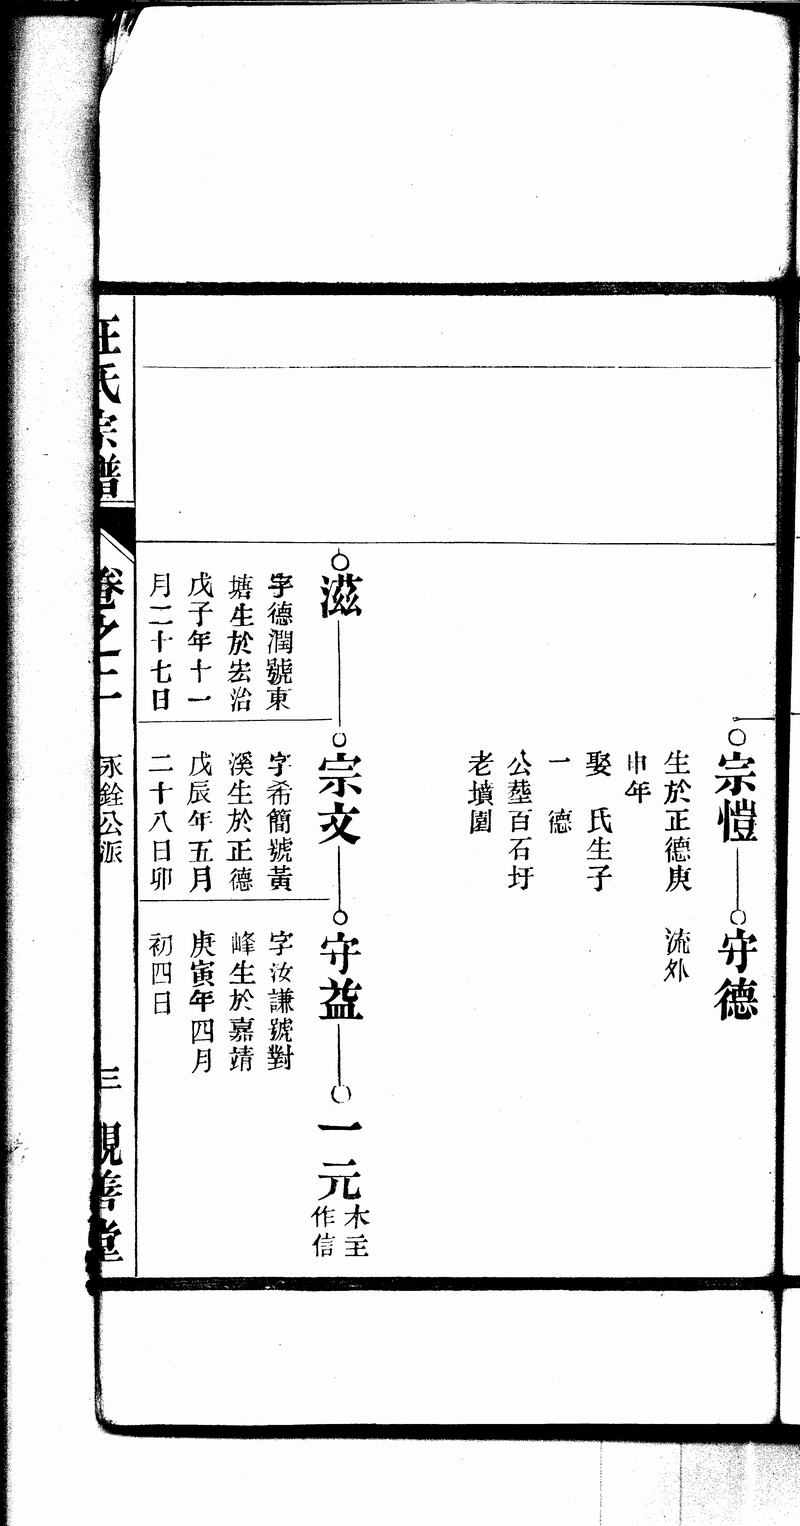 宗愷
生於正德庚
申年
娶 氏生子
一 德
公塟百石圩
老墳園
守德
流外
滋
字德潤號東
塘生於宏治
戊子年十一
月二十七日
宗文
字希簡號黃
溪生於正德
戊辰年五月
二十八日卯
守益
字汝謙號對
峰生於嘉靖
庚寅年四月
初四日
一元
木主
作信
汪氏宗譜
卷之二
永銓公派
三
親善堂